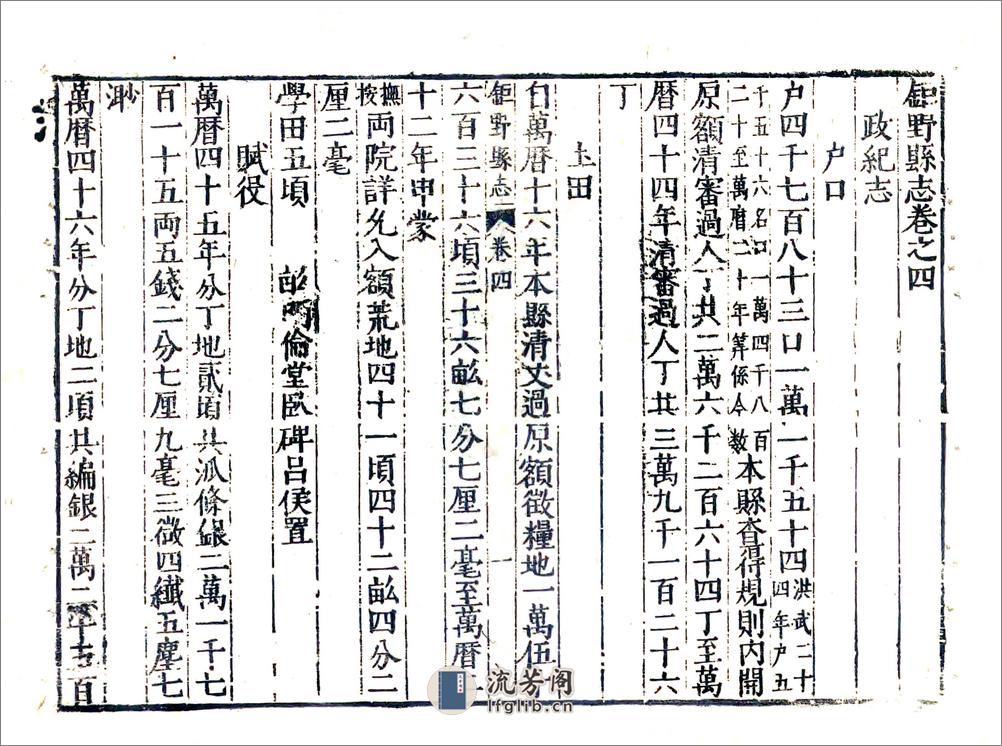 鉅野縣志卷之四
政紀志
户口
户四千七百八十三口一萬一千五十四洪武二十四年户五
千五十六名口一萬四千八百二十至萬曆二十年筭係今數本縣查得規則内開
原額清審過人丁共二萬六千二百六十四丁至萬
曆四十四年清審過人丁共三萬九千一百二十六
丁
土田
自萬曆十六年本縣清丈過原額徵糧地一萬伍千
鉅野縣志 卷四 一
六百三十六頃三十六畝七分七厘二毫至萬曆二
十二年申蒙
撫按兩院詳允入額荒地四十一頃四十二畝四分二
厘二毫
學田五頃 倫堂臥碑吕侯置
賦役
萬曆四十五年分丁地貳項共派條銀二萬一千七
百一十五両五錢二分七厘九毫三微四纎五塵七
渺
萬曆四十六年分丁地二項共編銀二萬二千七百
流芳阁
lfglib.cn